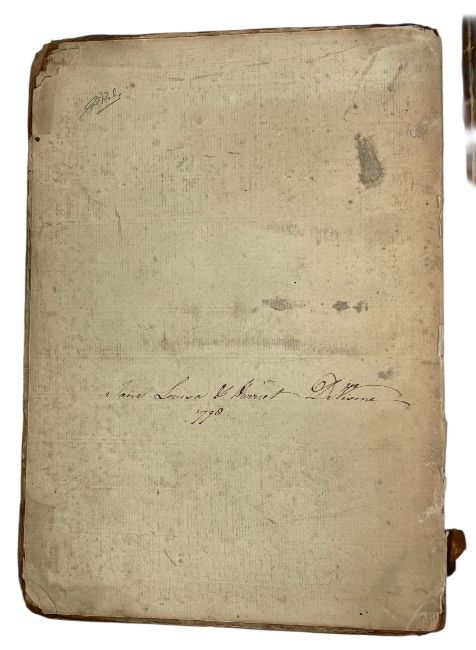 Jane Louisa & Harriet DeVisme
1798